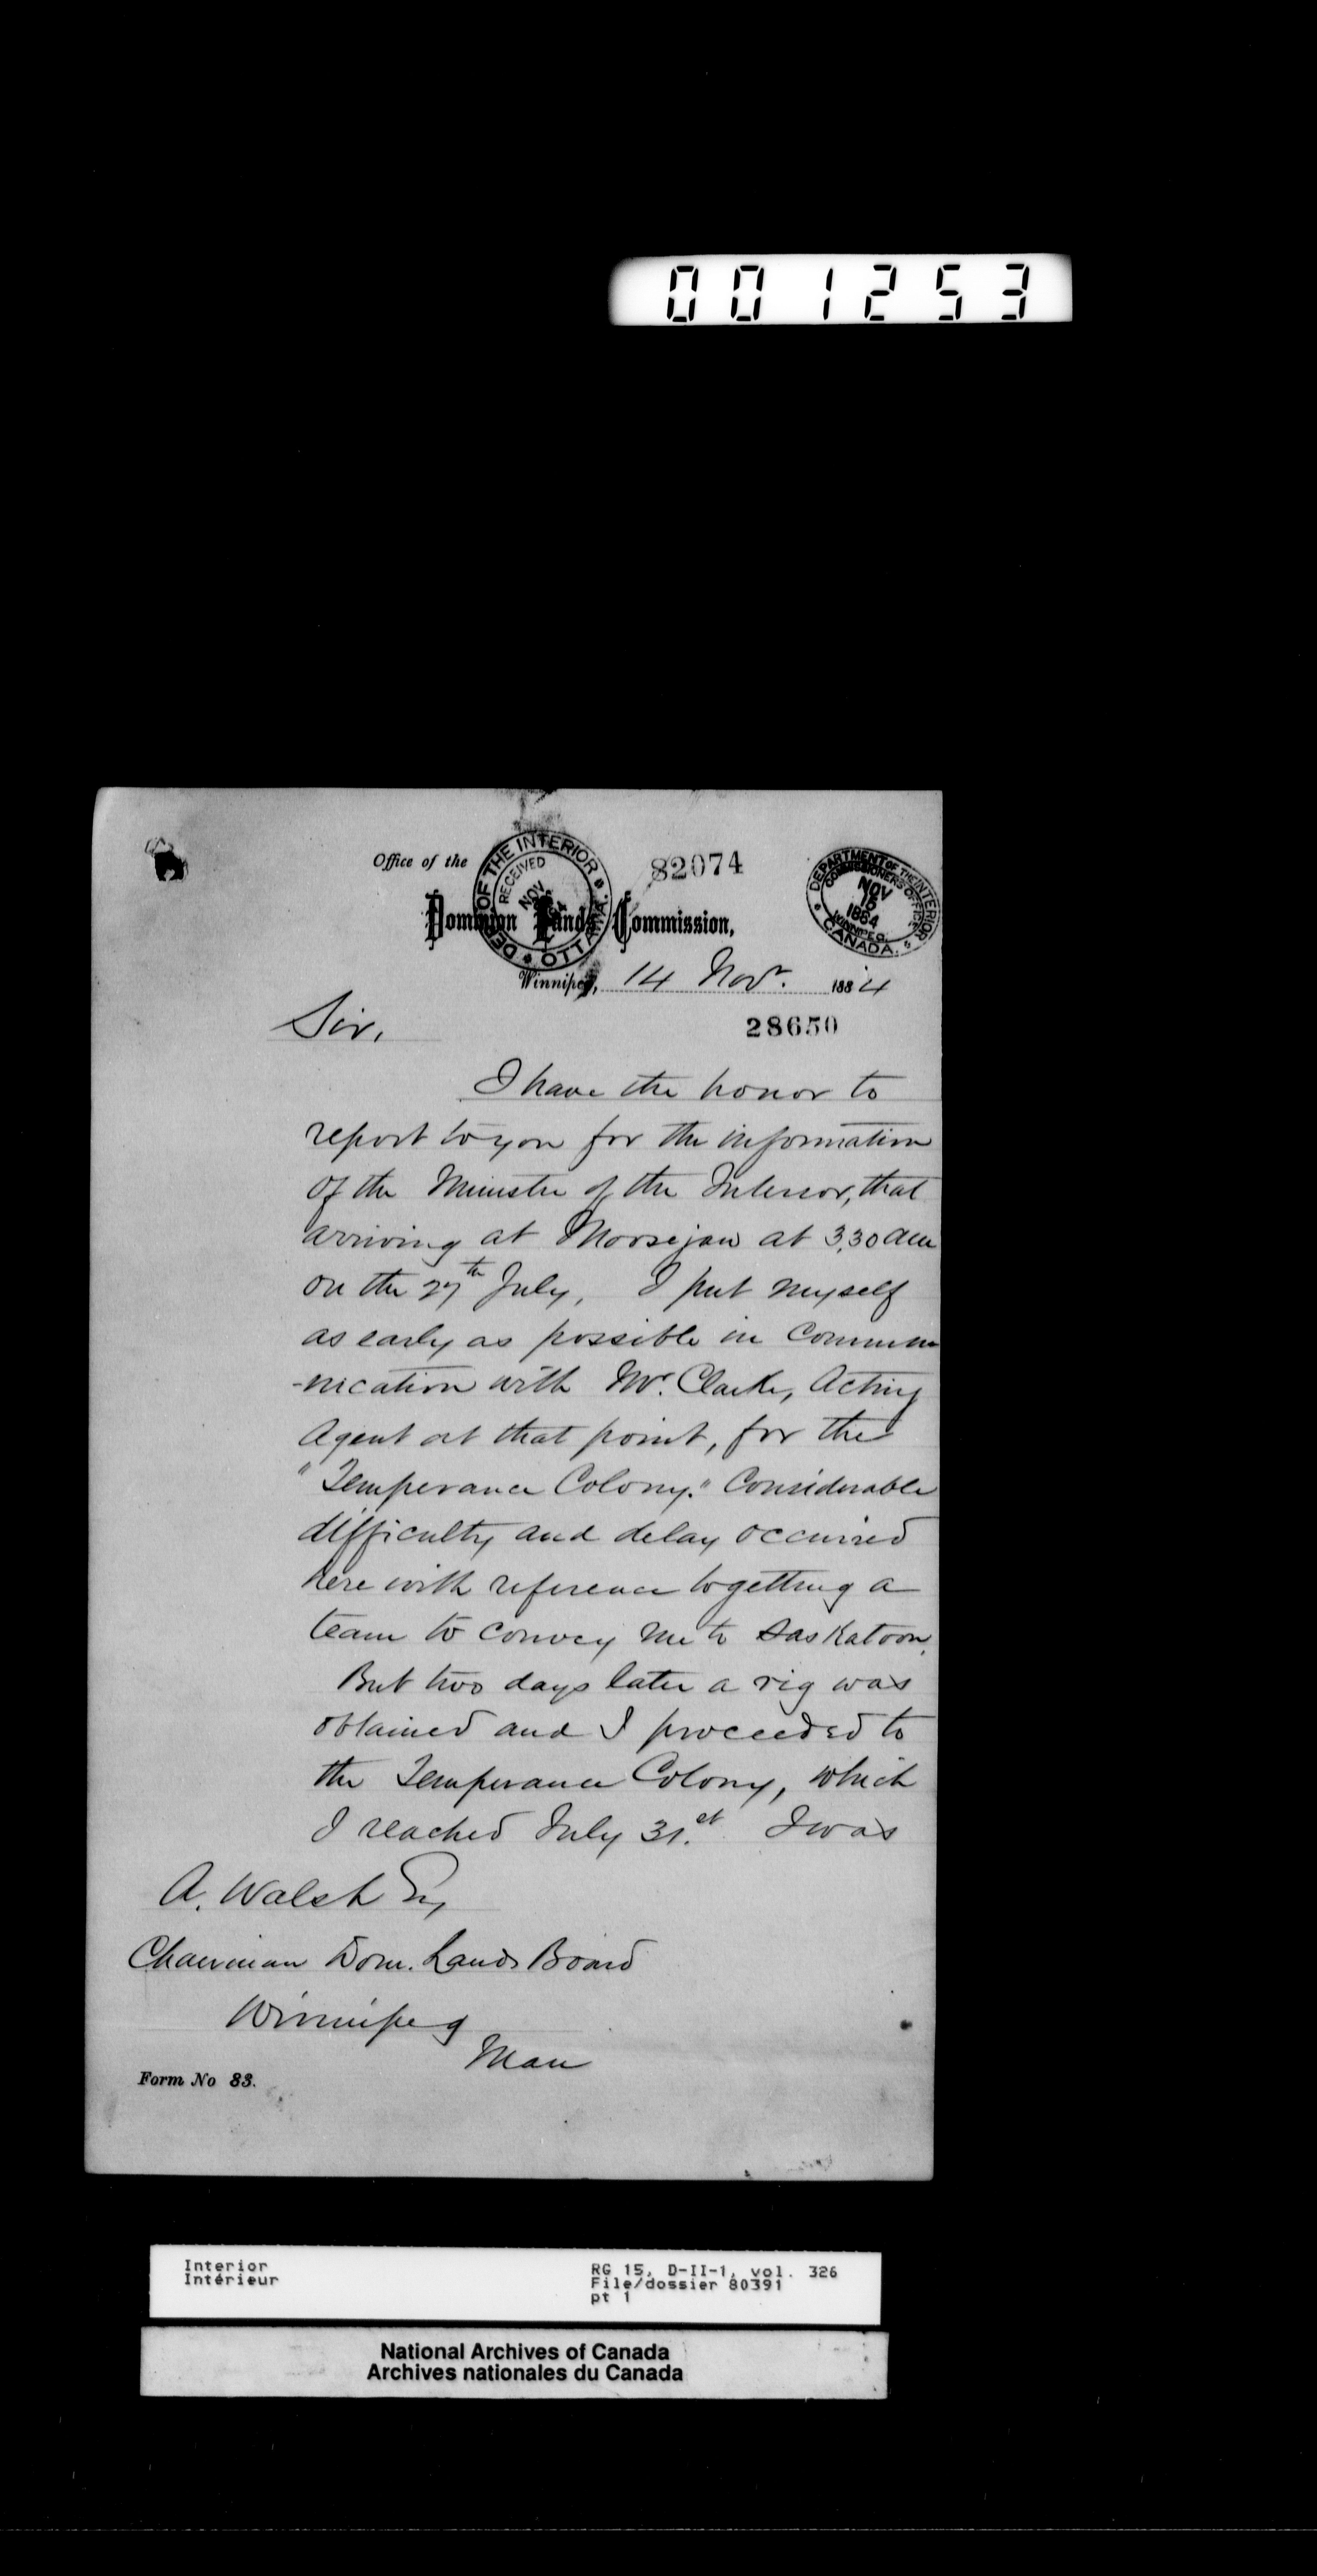 001253
Office of the
82074
DEP. OF THE INTERIOR
RECEIVED
NOV
OTTAWA
DEPARTMENT OF THE INTERIOR
COMMISSIONERS OFFICE
NOV
15
1884
WINNIPEG.
CANADA.
Dominion Lands Commission,
Winnipeg, 14 Novr. 1884
Sir,
28650
I have the honor to
report to you for the information
of the Minister of the Interior, that
arriving at Moosejaw at 3.30 am
on the 27th July, I put myself
as early as possible in commu
-nication with Mr. Clarke, Acting
Agent at that point, for the
"Temperance Colony." Considerable
difficulty and delay occurred
here with reference to getting a
team to convey me to Saskatoon.
But two days later a rig was
obtained and I proceeded to
the Temperance Colony, which
I reached July 31.st I was
A. Walsh Esq
Chairman Dom. Lands Board
Winnipeg
Man
Form No 83.
Interior
Intérieur
RG 15, D-II-1, vol. 326
File/dossier 80391
pt 1
National Archives of Canada
Archives nationales du Canada